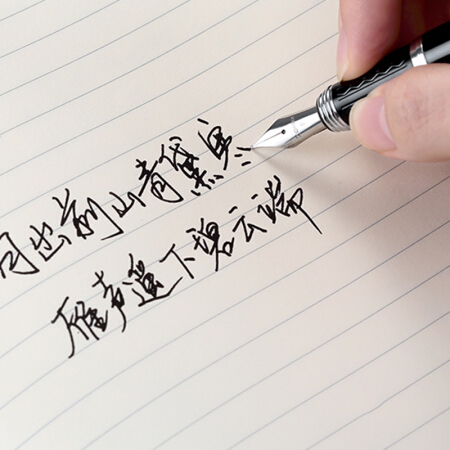 出前山青黛寒
雁声遥下碧云端